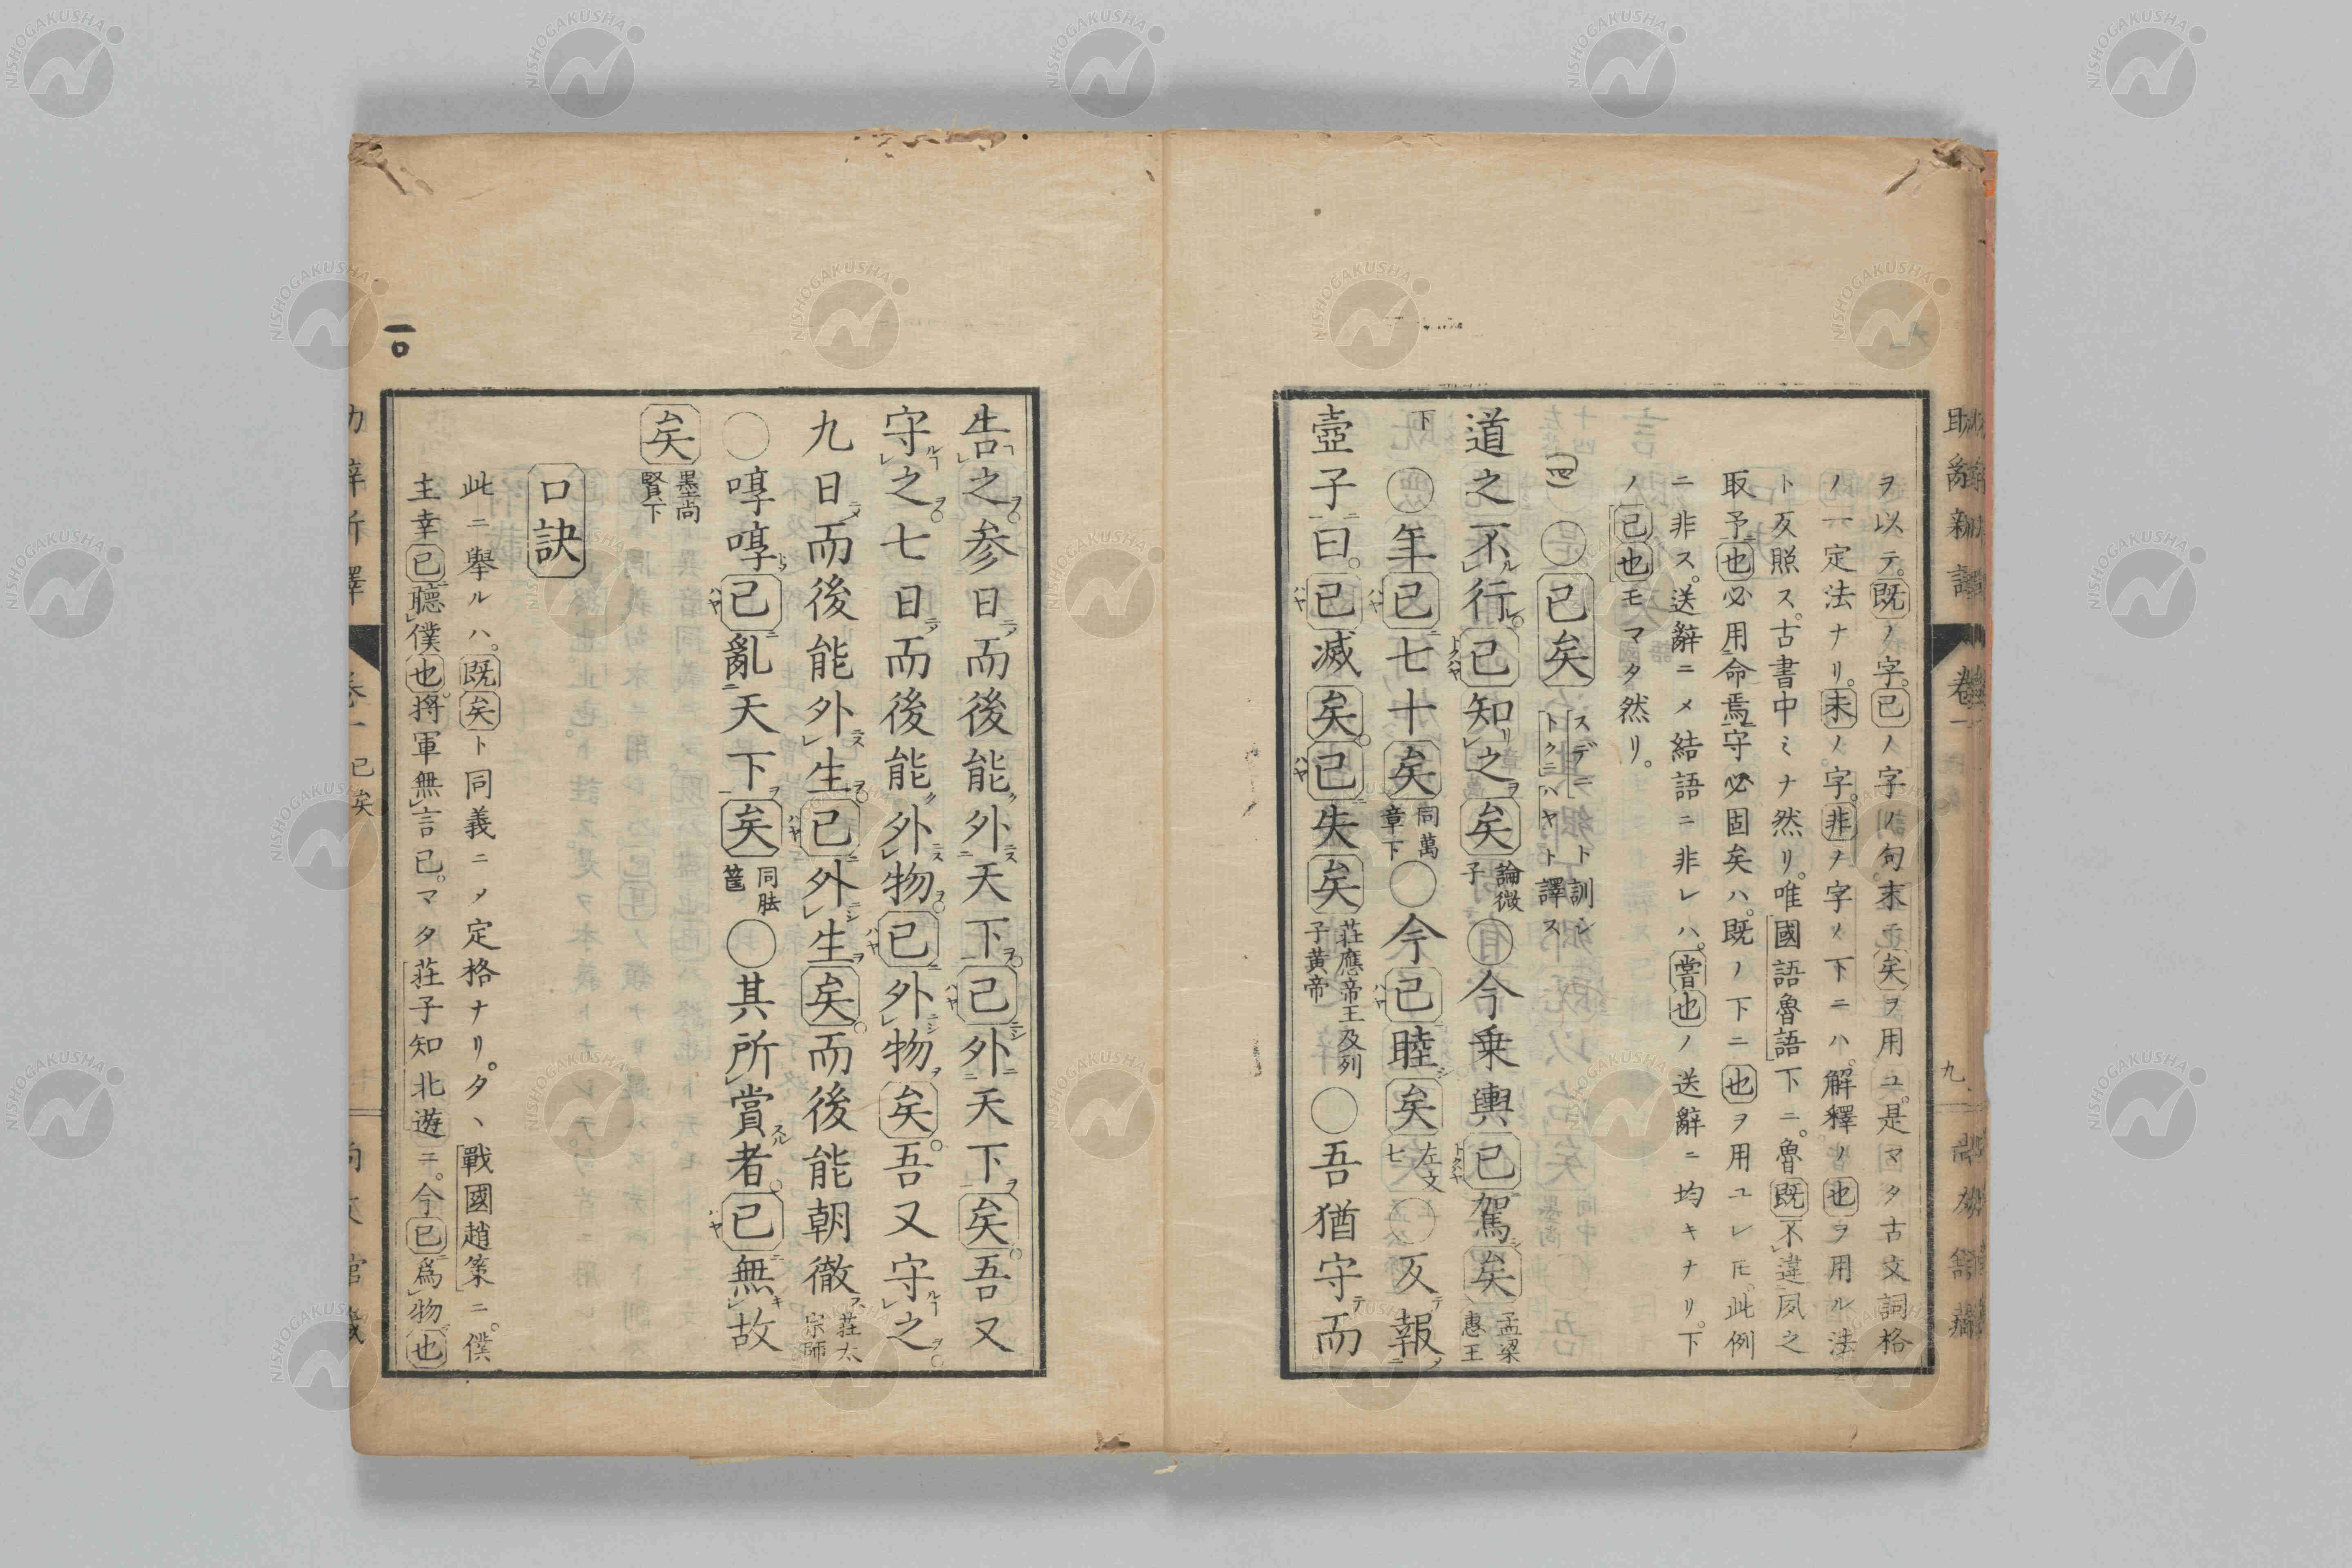 ヲ以テ。既ノ字。已ノ字ノ句末ニ矣ヲ用ユ。是マタ古文詞格
ノ一定法ナリ。未ノ字。非ノ字ノ下ニハ。解釋ノ也ヲ用ル法
ト反照ス。古書中ミナ然リ。唯國語魯語下ニ。魯既不違夙之
取予也必用命焉。守必固矣ハ。既ノ下ニ也ヲ用ユレ𪜈。此例
ニ非ス。送辭ニメ結語ニ非レハ。嘗也ノ送辭ニ均キナリ。下
ノ已也モマタ然リ。
(四)○已矣 スデニト訓シ
トクニハヤト譯ス
道之不行。已知之矣 論微子 ○今乗輿已駕矣 孟梁惠王
下 ○年已七十矣 同萬章下 ○今已睦矣 左文七 ○反報
壺子曰。已滅矣。已失矣 荘應帝王及列子黄帝 ○吾猶守而
告之。参日而後能外天下。已外天下矣。吾又
守之。七日而後能外物。已外物矣。吾又守之。
九日而後能外生。已外生矣。而後能朝徹 荘太宗師
○啍啍已亂天下矣 同胠篋 ○其所賞者。已無故
矣 墨尚賢下
口訣
此ニ擧ルハ。既矣ト同義ニメ定格ナリ。タヽ戰國趙策ニ。僕
主幸已聽僕也。将軍無言已。マタ荘子知北遊ニ。今已爲物也
助辭新譯
卷一
已矣
九
一〇
NISHOGAKUSHA